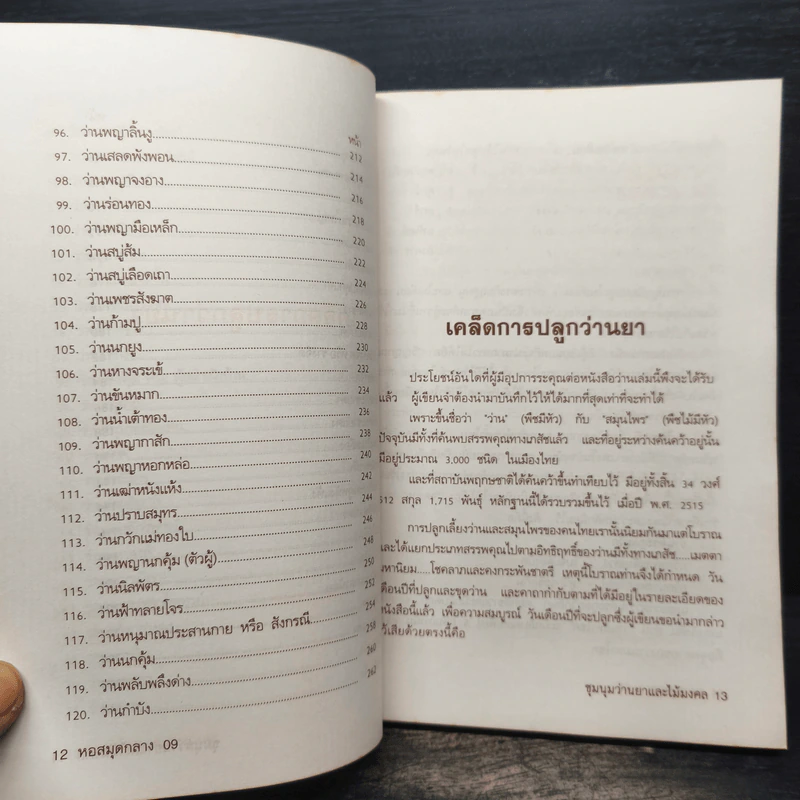 หน้า
96. ว่านพญาลิ้นงู 212
97. ว่านเสลดพังพอน 214
98. ว่านพญาจงอาง 216
99. ว่านร่อนทอง 218
100. ว่านพญามือเหล็ก 220
101. ว่านสบู่ส้ม 222
102. ว่านสบู่เลือดเถา 224
103. ว่านเพชรสังฆาต 226
104. ว่านก้ามปู 228
105. ว่านนกยูง 230
106. ว่านหางจระเข้ 232
107. ว่านขันหมาก 234
108. ว่านน้ำเต้าทอง 236
109. ว่านพญากาสัก 238
110. ว่านพญาหอกหล่อ 240
111. ว่านเฒ่าหนังแห้ง 242
112. ว่านปราบสมุทร 244
113. ว่านกวักแม่ทองใบ 246
114. ว่านพญานกคุ้ม (ตัวผู้) 248
115. ว่านนิลพัตร 250
116. ว่านฟ้าทลายโจร 252
117. ว่านหนุมาณประสานกาย หรือ สังกรณี 254
118. ว่านนกคุ้ม 258
119. ว่านพลับพลึงด่าง 260
120. ว่านกำบัง 262
12 หอสมุดกลาง 09
เคล็ดการปลูกว่านยา
ประโยชน์อันใดที่ผู้มีอุปการระคุณต่อหนังสือว่านเล่มนี้พึงจะได้รับ
แล้ว ผู้เขียนจำต้องนำมาบันทึกไว้ให้ได้มากที่สุดเท่าที่จะทำได้
เพราะขึ้นชื่อว่า "ว่าน" (พืชมีหัว) กับ "สมุนไพร" (พืชไม้มีหัว)
ปัจจุบันมีทั้งที่ค้นพบสรรพคุณทางเภสัชแล้ว และที่อยู่ระหว่างค้นคว้าอยู่นั้น
มีอยู่ประมาณ 3,000 ชนิด ในเมืองไทย
และที่สถาบันพฤกษชาติได้ค้นคว้าขึ้นทำเทียบไว้ มีอยู่ทั้งสิ้น 34 วงศ์
512 สกุล 1,715 พันธุ์ หลักฐานนี้ได้รวบรวมขึ้นไว้ เมื่อปี พ.ศ. 2515
การปลูกเลี้ยงว่านและสมุนไพรของคนไทยเรานั้นนิยมกันมาแต่โบราณ
และได้แยกประเภทสรรพคุณไปตามอิทธิฤทธิ์ของว่านมีทั้งทางเภสัช.....เมตตา
มหานิยม.....โชคลาภและคงกระพันชาตรี เหตุนี้โบราณท่านจึงได้กำหนด วัน
เดือนปีที่ปลูกและขุดว่าน และคาถากำกับตามที่ได้มีอยู่ในรายละเอียดของ
หนังสือนี้แล้ว เพื่อความสมบูรณ์ วันเดือนปีที่จะปลูกซึ่งผู้เขียนขอนำมากล่าว
ไว้เสียด้วยตรงนี้คือ
ชุมนุมว่านยาและไม้มงคล 13